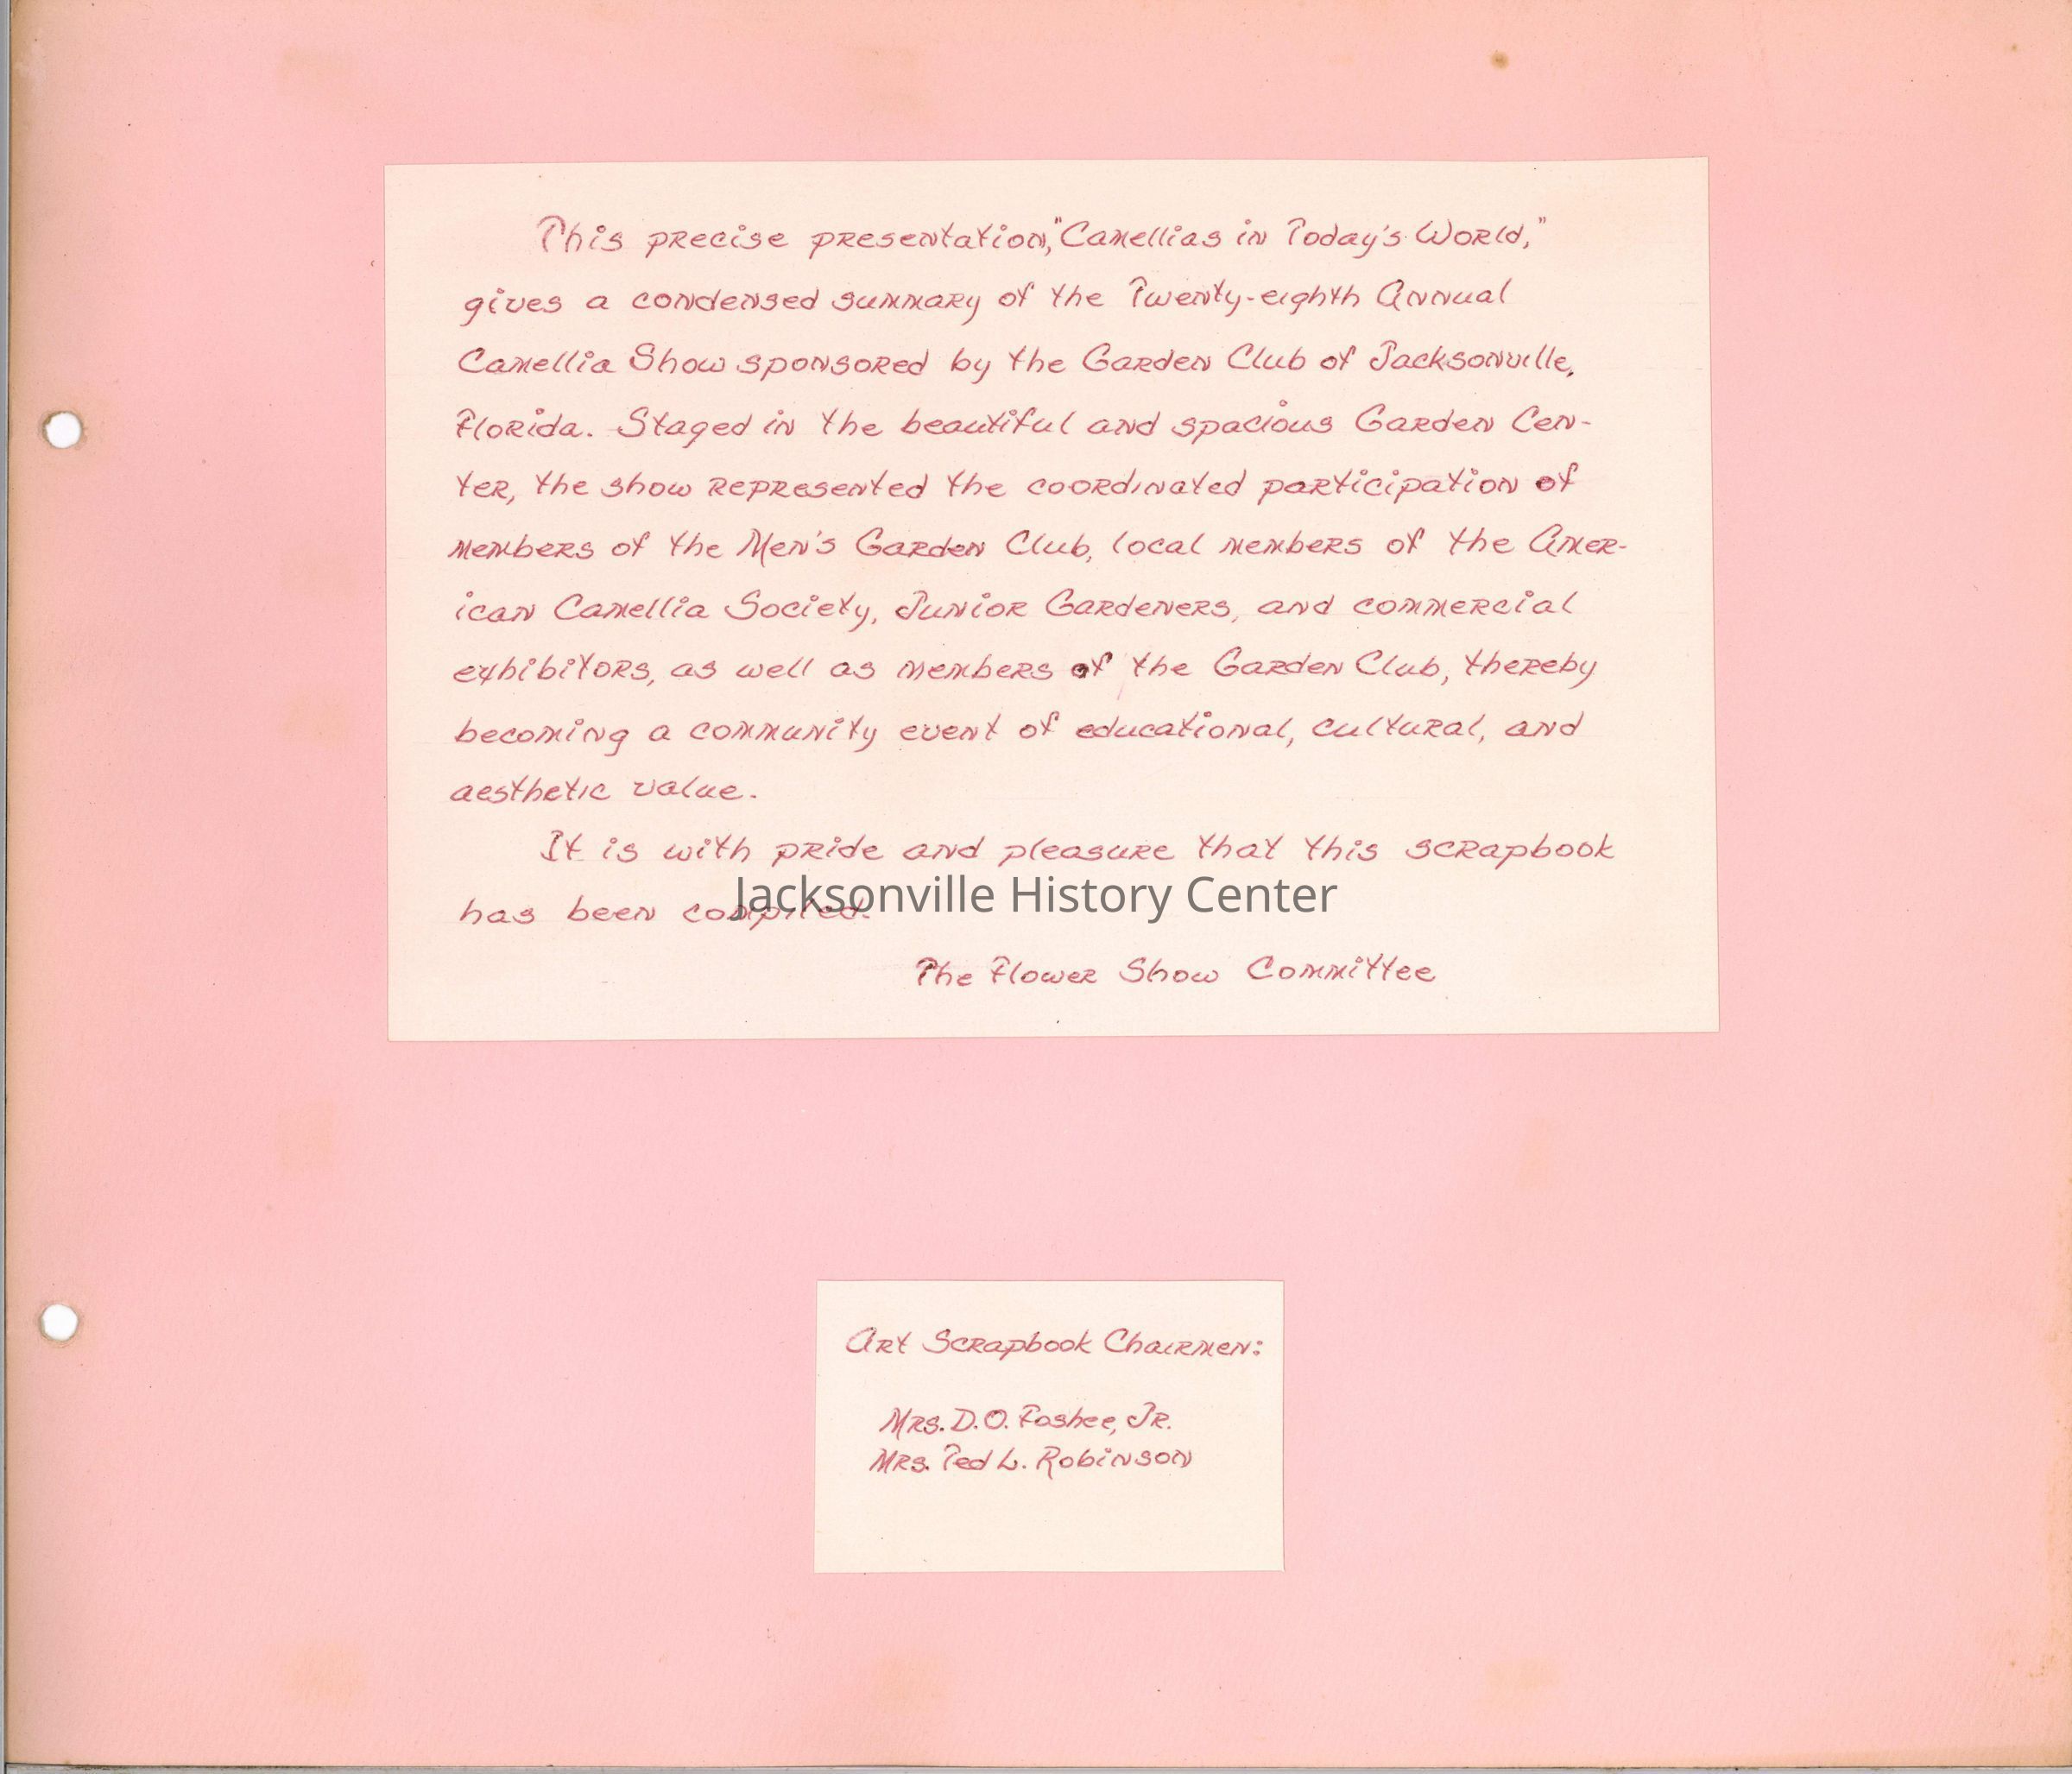 This precise presentation, "Camellias in Today's World,"
gives a condensed summary of the Twenty-eighth Annual
Camellia Show sponsored by the Garden Club of Jacksonville,
Florida. Staged in the beautiful and spacious Garden Cen-
ter, the show represented the coordinated participation of
members of the Men's Garden Club, local members of the Amer-
ican Camellia Society, Junior Gardeners, and commercial
exhibitors, as well as members of the Garden Club, thereby
becoming a community event of educational, cultural, and
aesthetic value.
It is with pride and pleasure that this scrapbook
has been compiled.
Jacksonville History Center
The Flower Show Committee
Art Scrapbook Chairmen:
Mrs. D.O. Foshee, Jr.
Mrs. Ted L. Robinson